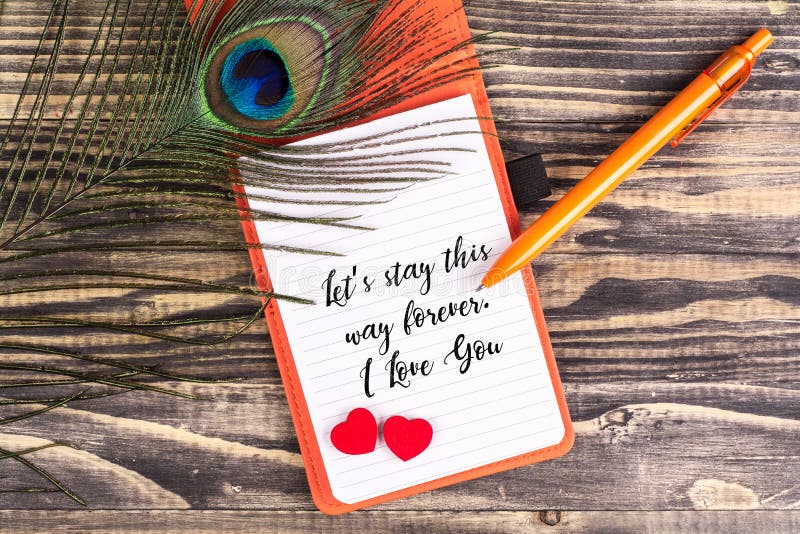 Let's stay this
way forever.
I Love You